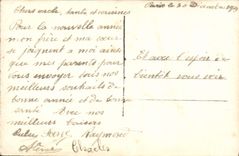 Paris le 30 Décembre 19
Chers oncle, tante et cousines
Pour la nouvelle année
mon frère et ma sœur
se joignent a moi ainsi
que mes parents pour
vous envoyer tous nos
meilleurs souhaits de
bonne année et de bonne
santé. Avec nos
meilleurs baisers
René Raymond
Charles
Et avec l'espoir de
bientôt vous voir